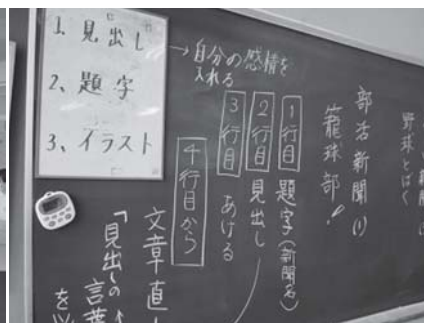 1、見出し
2、題字
3、イラスト
→自分の感情を
入れる
野球とばく
部活新聞(1)
籠球部!
1行目 題字(新聞名)
2行目 見出し
3行目 あける
4行目から
文章直し
「見出しの
言葉
を